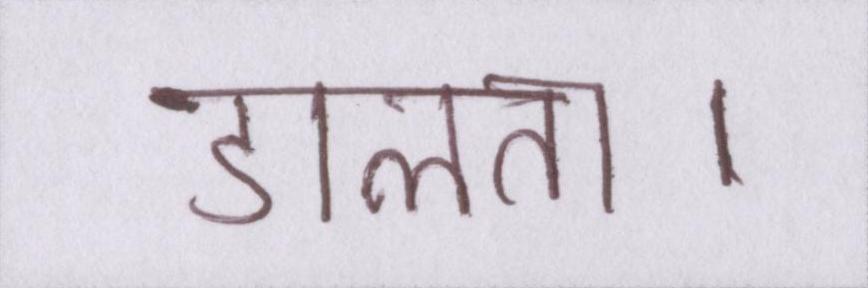 डालता ।